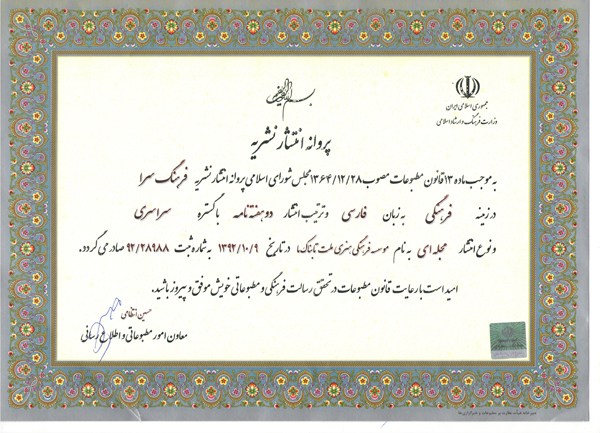 بسم الله الرحمن الرحیم
جمهوری اسلامی ایران
وزارت فرهنگ و ارشاد اسلامی
پروانه انتشار نشریه
به موجب ماده ۱۳ قانون مطبوعات مصوب ۱۳۶۴/۱۲/۲۸ مجلس شورای اسلامی پروانه انتشار نشریه فرهنگ سرا
در زمینه فرهنگی به زبان فارسی و ترتیب انتشار دو هفته نامه با گستره سراسری
و نوع انتشار مجله ای به نام موسسه فرهنگی هنری ملت تابناک ما در تاریخ ۱۳۹۲/۱۰/۹ به شماره ثبت ۹۲/۲۸۹۸۸ صادر می گردد.
امید است با رعایت قانون مطبوعات در تحقق رسالت فرهنگی و مطبوعاتی خویش موفق و پیروز باشید.
حسین انتظامی
معاون امور مطبوعاتی و اطلاع رسانی
دبیرخانه هیات نظارت بر مطبوعات و خبرگزاری ها